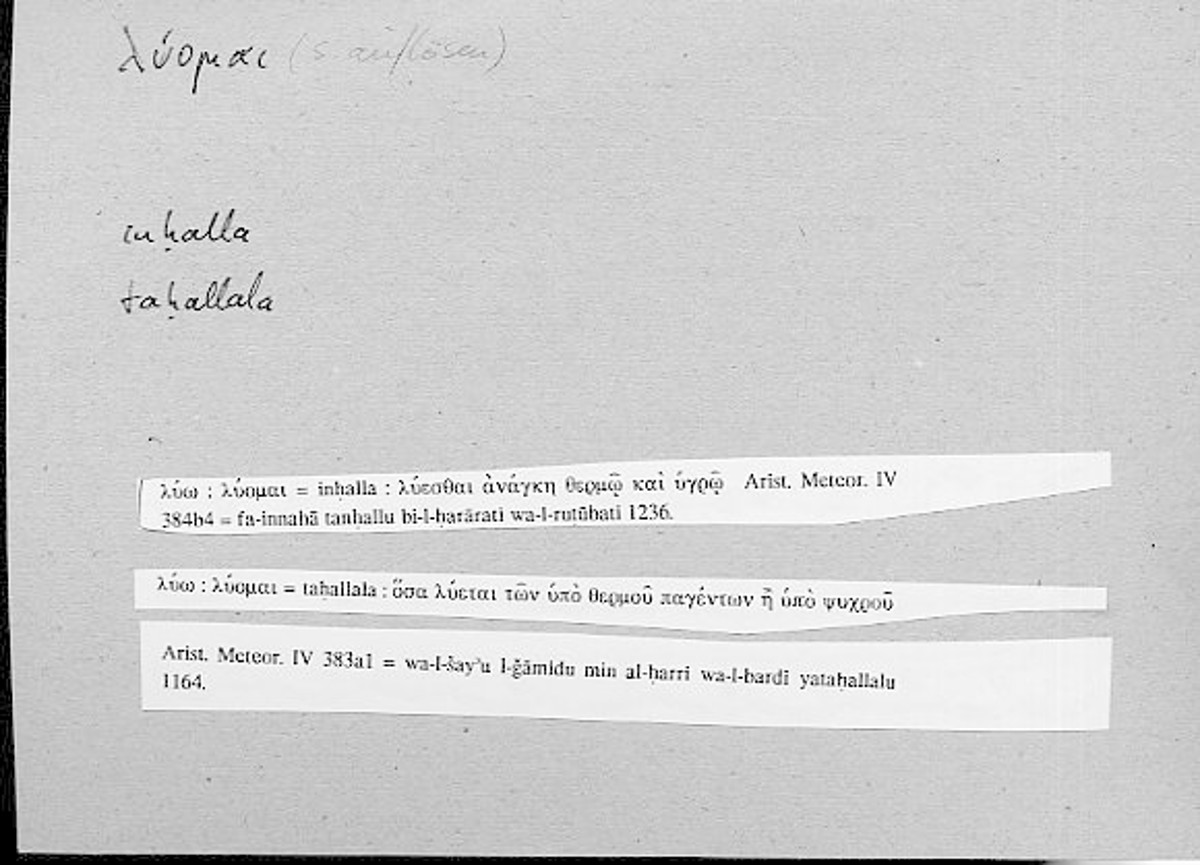 λύομαι (s. auflösen)
inḥalla
taḥallala
λύω : λύομαι = inḥalla : λύεσθαι ἀνάγκη θερμῷ καὶ ὑγρῷ Arist. Meteor. IV
384b4 = fa-innahā tanḥallu bi-l-ḥarārati wa-l-ruṭūbati 1236.
λύω : λύομαι = taḥallala : ὅσα λύεται τῶν ὑπὸ θερμοῦ παγέντων ἢ ὑπὸ ψυχροῦ
Arist. Meteor. IV 383a1 = wa-l-šayʾu l-ǧāmidu min al-ḥarri wa-l-bardi yataḥallalu
1164.